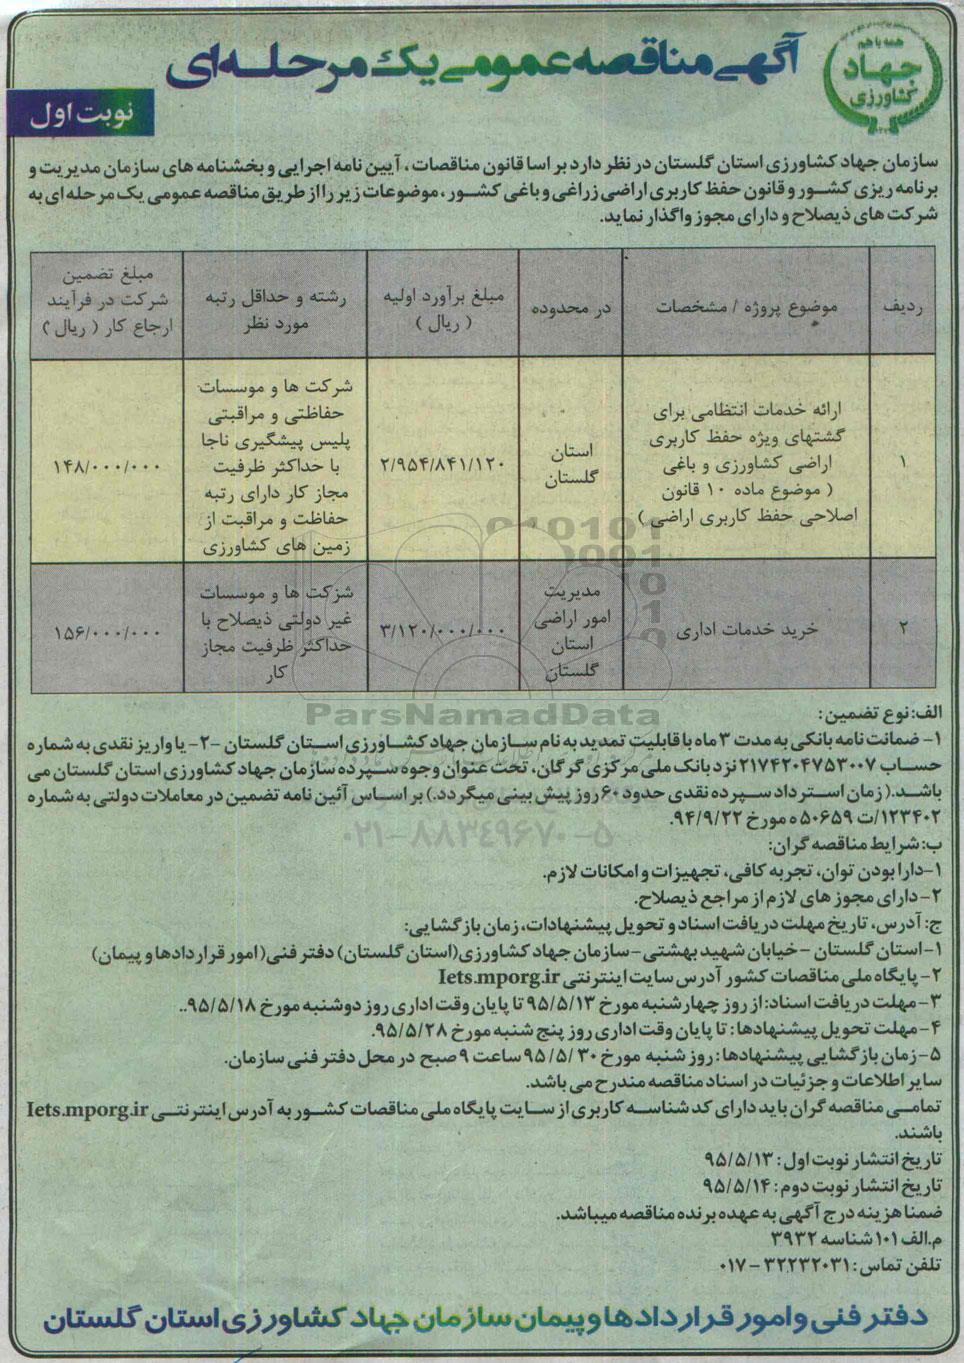 همه با هم
جهاد
کشاورزی
آگهی مناقصه عمومی یک مرحله‌ای
نوبت اول
سازمان جهاد کشاورزی استان گلستان در نظر دارد بر اسا قانون مناقصات، آیین نامه اجرایی و بخشنامه های سازمان مدیریت و
برنامه ریزی کشور و قانون حفظ کاربری اراضی زراعی و باغی کشور، موضوعات زیر را از طریق مناقصه عمومی یک مرحله ای به
شرکت های ذیصلاح و دارای مجوز واگذار نماید.
ردیف
موضوع پروژه / مشخصات
در محدوده
مبلغ برآورد اولیه
( ریال )
رشته و حداقل رتبه
مورد نظر
مبلغ تضمین
شرکت در فرآیند
ارجاع کار ( ریال )
۱
ارائه خدمات انتظامی برای
گشتهای ویژه حفظ کاربری
اراضی کشاورزی و باغی
( موضوع ماده ۱۰ قانون
اصلاحی حفظ کاربری اراضی )
استان
گلستان
۲/۹۵۴/۸۴۱/۱۲۰
شرکت ها و موسسات
حفاظتی و مراقبتی
پلیس پیشگیری ناجا
با حداکثر ظرفیت
مجاز کار دارای رتبه
حفاظت و مراقبت از
زمین های کشاورزی
۱۴۸/۰۰۰/۰۰۰
۲
خرید خدمات اداری
مدیریت
امور اراضی
استان
گلستان
۳/۱۲۰/۰۰۰/۰۰۰
شزکت ها و موسسات
غیر دولتی ذیصلاح با
حداکثر ظرفیت مجاز
کار
۱۵۶/۰۰۰/۰۰۰
ParsNamadData
۰۲۱-۸۸۳۴۹۶۷۰-۵
الف: نوع تضمین:
۱- ضمانت نامه بانکی به مدت ۳ ماه با قابلیت تمدید به نام سازمان جهاد کشاورزی استان گلستان -۲- یا واریز نقدی به شماره
حساب ۲۱۷۴۲۰۴۷۵۳۰۰۷ نزد بانک ملی مرکزی گرگان، تحت عنوان وجوه سپرده سازمان جهاد کشاورزی استان گلستان می
باشد.( زمان استرداد سپرده نقدی حدود ۶۰ روز پیش بینی میگردد.) بر اساس آئین نامه تضمین در معاملات دولتی به شماره
۱۲۳۴۰۲/ت ۵۰۶۵۹ ه مورخ ۹۴/۹/۲۲.
ب: شرایط مناقصه گران:
۱-دارا بودن توان، تجربه کافی، تجهیزات و امکانات لازم.
۲-دارای مجوز های لازم از مراجع ذیصلاح.
ج: آدرس، تاریخ مهلت دریافت اسناد و تحویل پیشنهادات، زمان بازگشایی:
۱-استان گلستان -خیابان شهید بهشتی-سازمان جهاد کشاورزی(استان گلستان) دفتر فنی( امور قراردادها و پیمان)
۲-پایگاه ملی مناقصات کشور آدرس سایت اینترنتی Iets.mporg.ir
۳-مهلت دریافت اسناد: از روز چهارشنبه مورخ ۹۵/۵/۱۳ تا پایان وقت اداری روز دوشنبه مورخ ۹۵/۵/۱۸..
۴-مهلت تحویل پیشنهادها: تا پایان وقت اداری روز پنج شنبه مورخ ۹۵/۵/۲۸.
۵-زمان بازگشایی پیشنهادها: روز شنبه مورخ ۹۵/۵/۳۰ ساعت ۹ صبح در محل دفتر فنی سازمان.
سایر اطلاعات و جزئیات در اسناد مناقصه مندرح می باشد.
تمامی مناقصه گران باید دارای کد شناسه کاربری از سایت پایگاه ملی مناقصات کشور به آدرس اینترنتی Iets.mporg.ir
باشند.
تاریخ انتشار نوبت اول: ۹۵/۵/۱۳
تاریخ انتشار نوبت دوم: ۹۵/۵/۱۴
ضمنا هزینه درج آگهی به عهده برنده مناقصه میباشد.
م.الف ۱۰۱ شناسه ۳۹۳۲
تلفن تماس: ۳۲۲۳۲۰۳۱-۰۱۷
دفتر فنی و امور قراردادها و پیمان سازمان جهاد کشاورزی استان گلستان